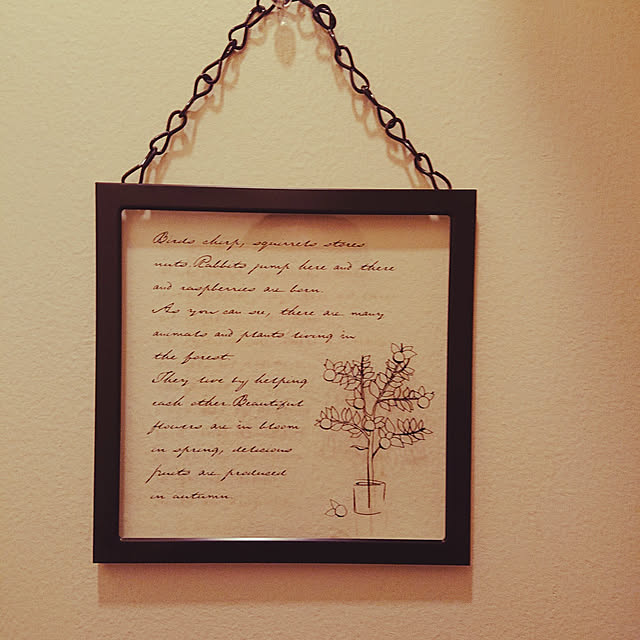 Birds chirp, squirrels stores
nuts. Rabbits jump here and there
and raspberries are born
As you can see, there are many
animals and plants living in
the forest.
They live by helping
each other. Beautiful
flowers are in bloom
in spring, delicious
fruits are produced
in autumn.